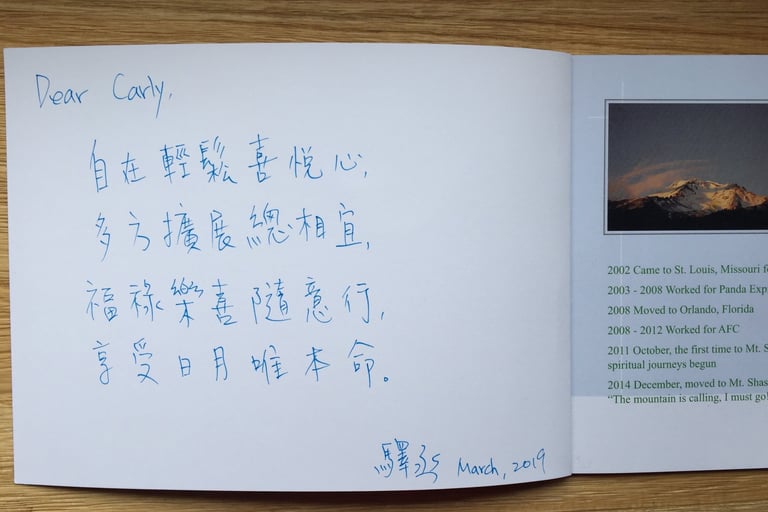 Dear Carly,
自在輕鬆喜悅心,
多方擴展總相宜,
福祿樂喜隨意行,
享受日月唯本命。
驛丞 March, 2019
2002 Came to St. Louis, Missouri f
2003 - 2008 Worked for Panda Exp
2008 Moved to Orlando, Florida
2008 - 2012 Worked for AFC
2011 October, the first time to Mt. S
spiritual journeys begun
2014 December, moved to Mt. Shas
“The mountain is calling, I must go!